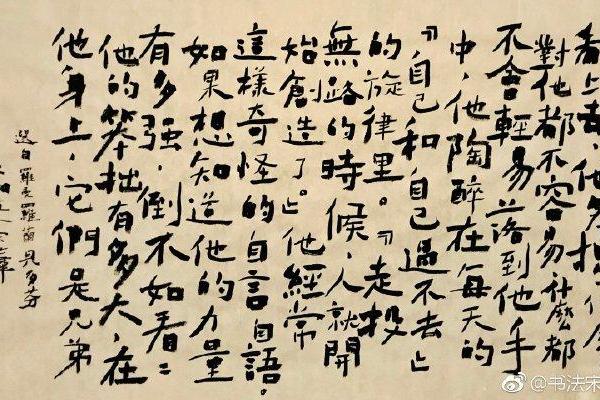 看上去，他
對他都不容易什麼都
不會輕易落到他手
中，他陶醉在每天的
『自己和自己過不去』
的旋律里。『走投
無路的時候，人就開
始創造了。』他經常
這樣奇怪的自言自語。
如果想知道他的力量
有多强，倒不如看〻
他的笨拙有多大，在
他身上，它們是兄弟
選自羅曼羅蘭貝多芬
@书法宋